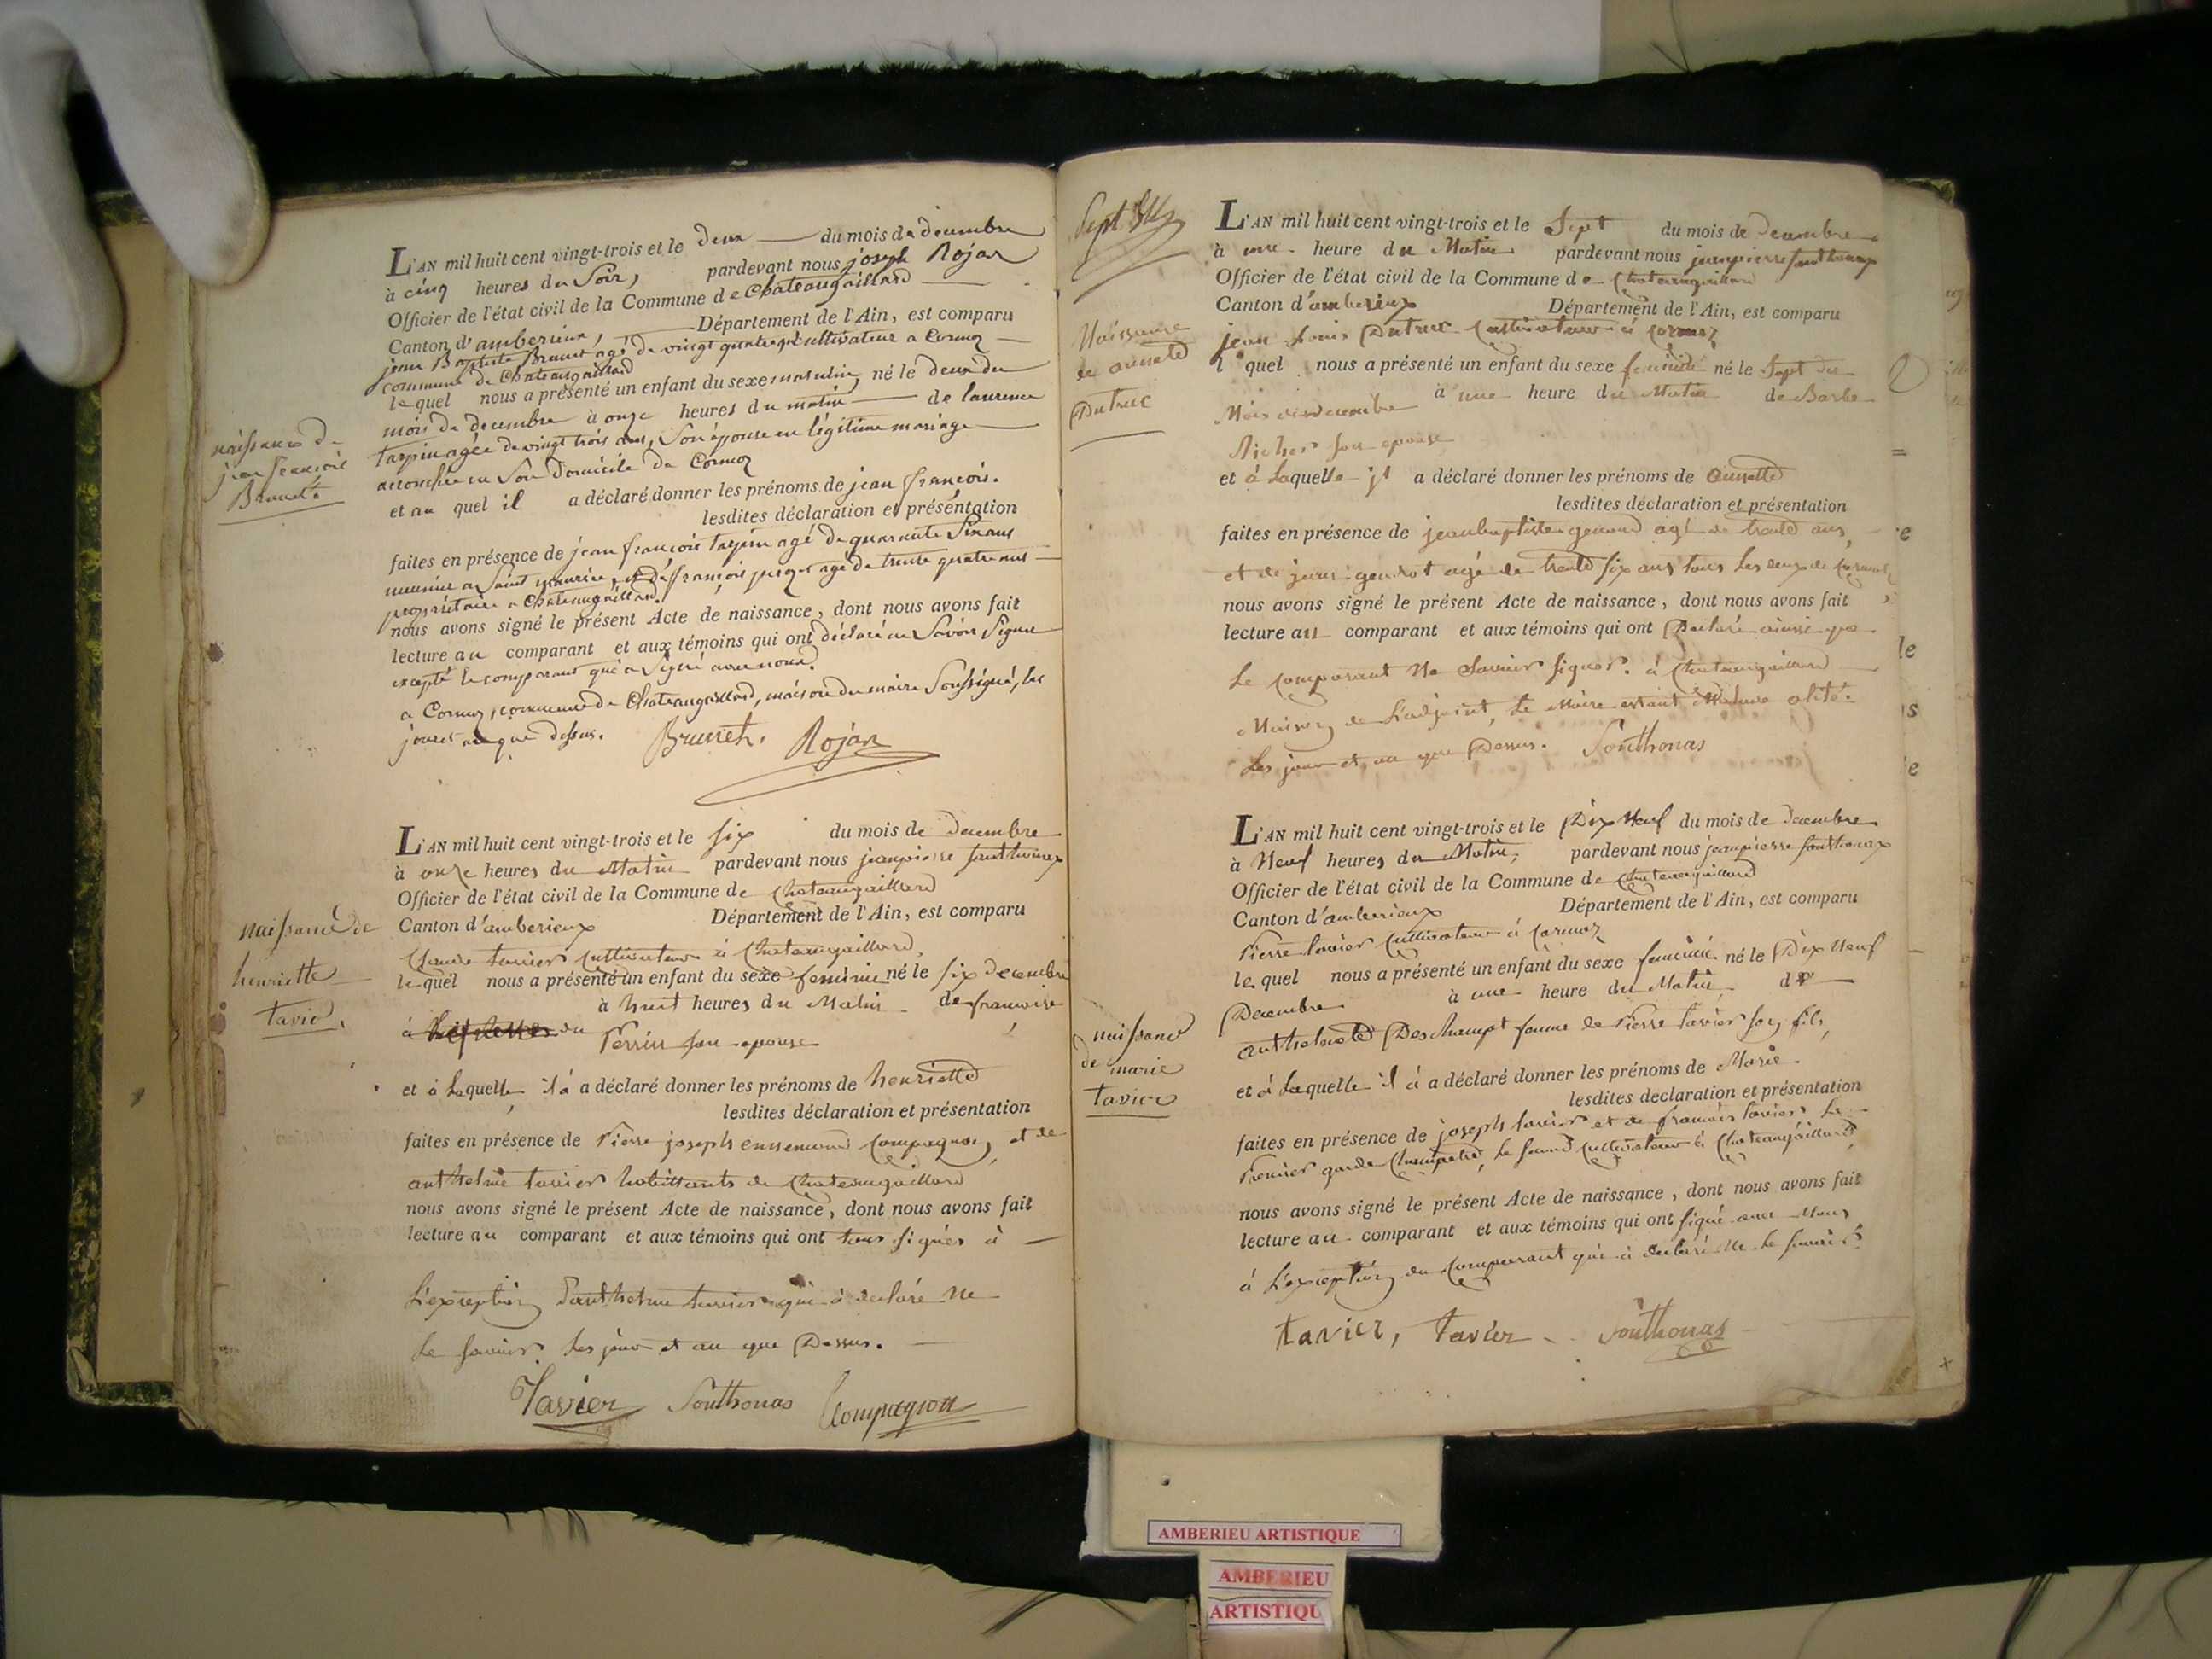 naissance de
jean françois
Brunet
L'AN mil huit cent vingt-trois et le deux du mois de decembre
à cinq heures du Soir, pardevant nous joseph Rojan
Officier de l'état civil de la Commune de Chateaugaillard
Canton d'amberieux, Département de l'Ain, est comparu
jean Baptiste Brunet agé de vingt quatre ans cultivateur a Cormoz
commune de Chateaugaillard
le quel nous a présenté un enfant du sexe masculin né le deux du
mois de decembre à onze heures du matin de laurence
tarpin agée de vingt trois ans, Son épouse en légitime mariage
accouchée en Son domicile de Cormoz
et au quel il a déclaré donner les prénoms de jean françois.
lesdites déclaration et présentation
faites en présence de jean françois tarpin agé de quarante Six ans
meunier a Saint maurice, et de françois agé de trente quatre ans
propriétaire a Chateaugaillard.
nous avons signé le présent Acte de naissance, dont nous avons fait
lecture au comparant et aux témoins qui ont déclaré ne Savoir Signer
excepté le comparant qui a Signé avec nous.
a Cormoz, commune de Chateaugaillard, maison du maire Soussigné, les
jours et an que dessus. Brunet. Rojan
naissance de
henriette
tavier
L'AN mil huit cent vingt-trois et le six du mois de decembre
à onze heures du Matin pardevant nous jeanpierre
Officier de l'état civil de la Commune de Chateaugaillard
Canton d'amberieux Département de l'Ain, est comparu
Claude tavier Cultivateur à Chateaugaillard,
le quel nous a présenté un enfant du sexe feminin né le six decembre
à huit heures du Matin de francoise
à du Perrin son epouse
et à Laquelle il à a déclaré donner les prénoms de henriette
lesdites déclaration et présentation
faites en présence de Pierre joseph ennemond Compagnon, et de
anthelme tavier habittants de Chateaugaillard
nous avons signé le présent Acte de naissance, dont nous avons fait
lecture au comparant et aux témoins qui ont tous signés à
L'exception d'anthelme tavier qui à declaré ne
Le savoir. les jour et an que Dessus.
Tavier Southonas Compagnon
Sept
Naissance
de annette
Dutruc
L'AN mil huit cent vingt-trois et le Sept du mois de Decembre
à heure du Matin pardevant nous jeanpierre
Officier de l'état civil de la Commune de Chateaugaillard
Canton d'amberieux Département de l'Ain, est comparu
jean Louis Dutruc Cultivateur à Cormoz
l quel nous a présenté un enfant du sexe feminin né le Sept du
Mois de decembre à une heure du Matin de Barbe
son epouse
et à Laquelle il a déclaré donner les prénoms de annette
lesdites déclaration et présentation
faites en présence de jeanbaptiste agé de trente ans,
et de jean agé de trente six ans tous Les deux de Cormoz
nous avons signé le présent Acte de naissance, dont nous avons fait
lecture au comparant et aux témoins qui ont Declaré ainsi que
Le Comparant Ne Savoir signer. à Chateaugaillard
Maison de L'adjoint, Le Maire estant Malade alité.
Les jour et an que Dessus. Southonas
naissance
de marie
tavier
L'AN mil huit cent vingt-trois et le Dix Neuf du mois de Decembre
à Neuf heures du Matin, pardevant nous jeanpierre
Officier de l'état civil de la Commune de Chateaugaillard
Canton d'amberieux Département de l'Ain, est comparu
Pierre tavier Cultivateur à Cormoz
le quel nous a présenté un enfant du sexe feminin né le Dix Neuf
Decembre à une heure du Matin d
Deschampt femme de Pierre tavier son fils,
et à Laquelle il à a déclaré donner les prénoms de Marie
lesdites declaration et présentation
faites en présence de joseph tavier et de francois tavier Le
Premier garde Champetre, Le second Cultivateur à Chateaugaillard,
nous avons signé le présent Acte de naissance, dont nous avons fait
lecture au comparant et aux témoins qui ont signé avec Nous
à L'exception du Comparant qui à declaré Ne Le savoir.
tavier, tavier Southonas
AMBERIEU ARTISTIQUE
AMBERIEU
ARTISTIQU